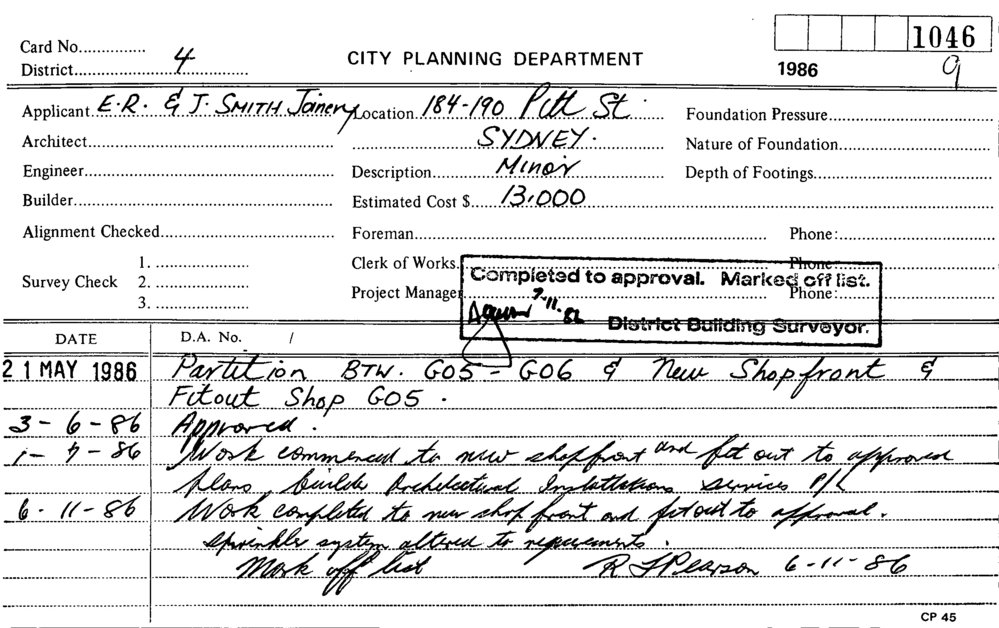 1046
Card No...............
District.......... 4 ..........
CITY PLANNING DEPARTMENT
1986
9
Applicant E.R. & J. SMITH Joinery Location 184-190 Pitt St. Foundation Pressure
Architect SYDNEY. Nature of Foundation
Engineer Description Minor Depth of Footings
Builder Estimated Cost $ 13,000
Alignment Checked Foreman Phone:
Survey Check 1. Clerk of Works Phone:
2. Project Manager Phone:
3.
Completed to approval. Marked off list.
7-11-86
District Building Surveyor.
DATE D.A. No. /
21 MAY 1986 Partition BTW. G05 - G06 & New Shopfront &
Fitout Shop G05.
3-6-86 Approved.
1-7-86 Work commenced to new shopfront and fit out to approved
plans builder Architectural Installations Services P/L
6-11-86 Work completed to new shop front and fitout to approval.
sprinkler system altered to requirements.
Mark off list R J Pearson 6-11-86
CP 45